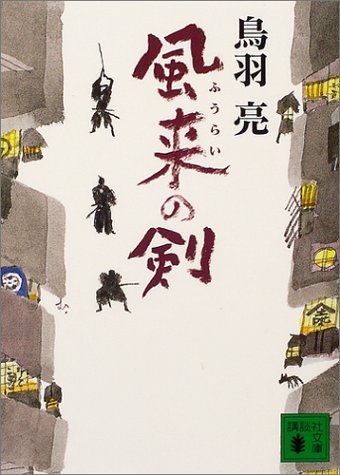 鳥羽亮
風来の剣
ふうらい
講談社
文庫